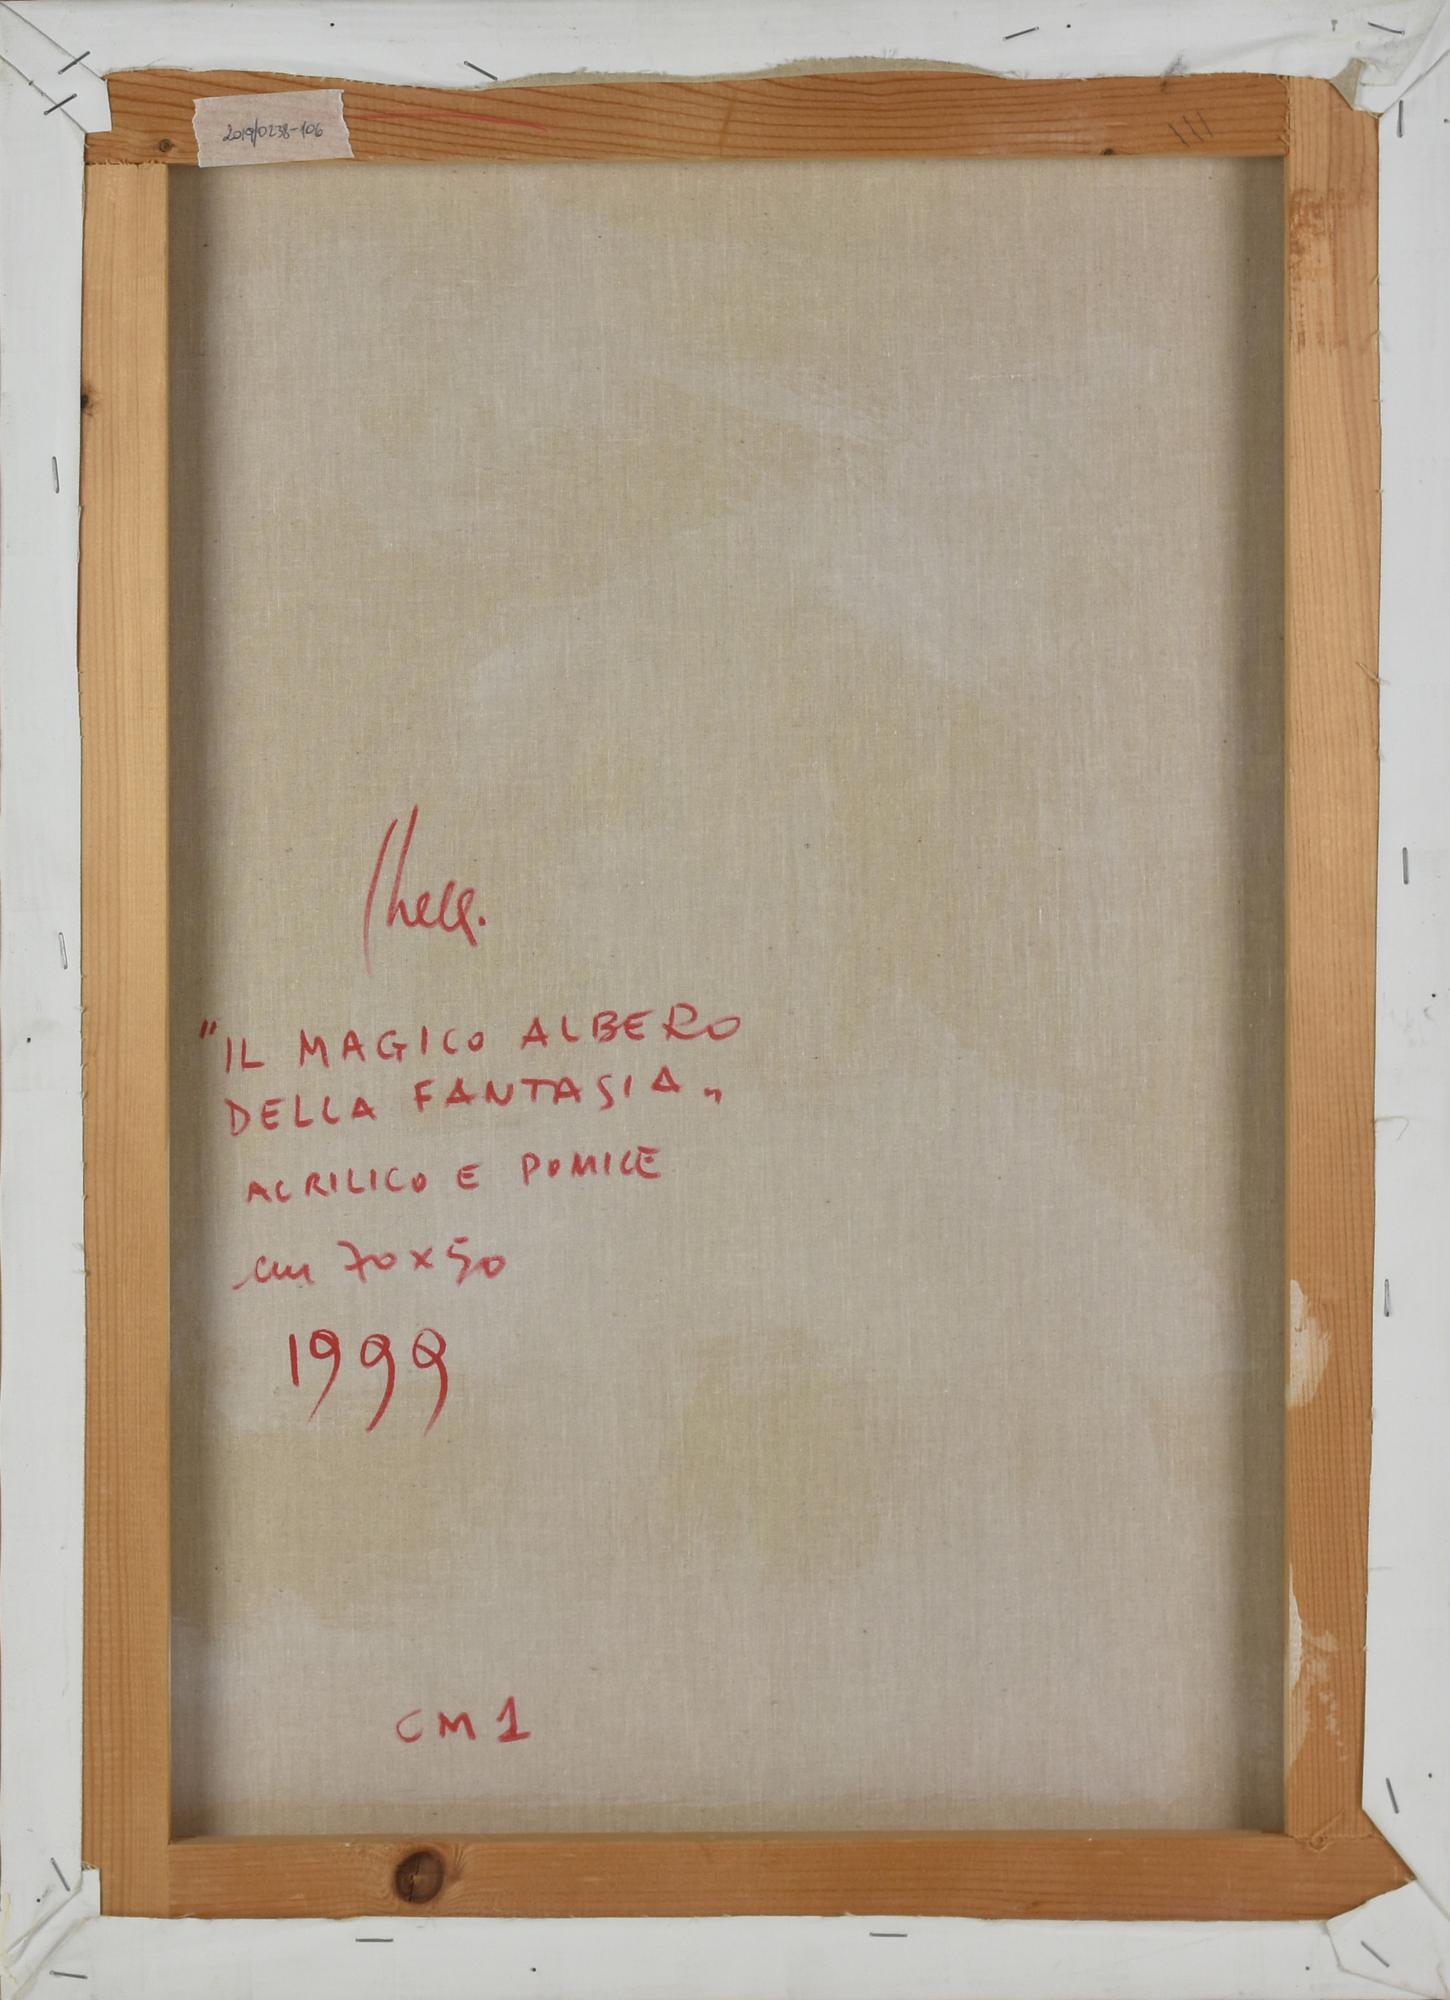 2019/0238-106
"IL MAGICO ALBERO
DELLA FANTASIA„
ACRILICO E POMICE
cm 70x50
1999
CM 1